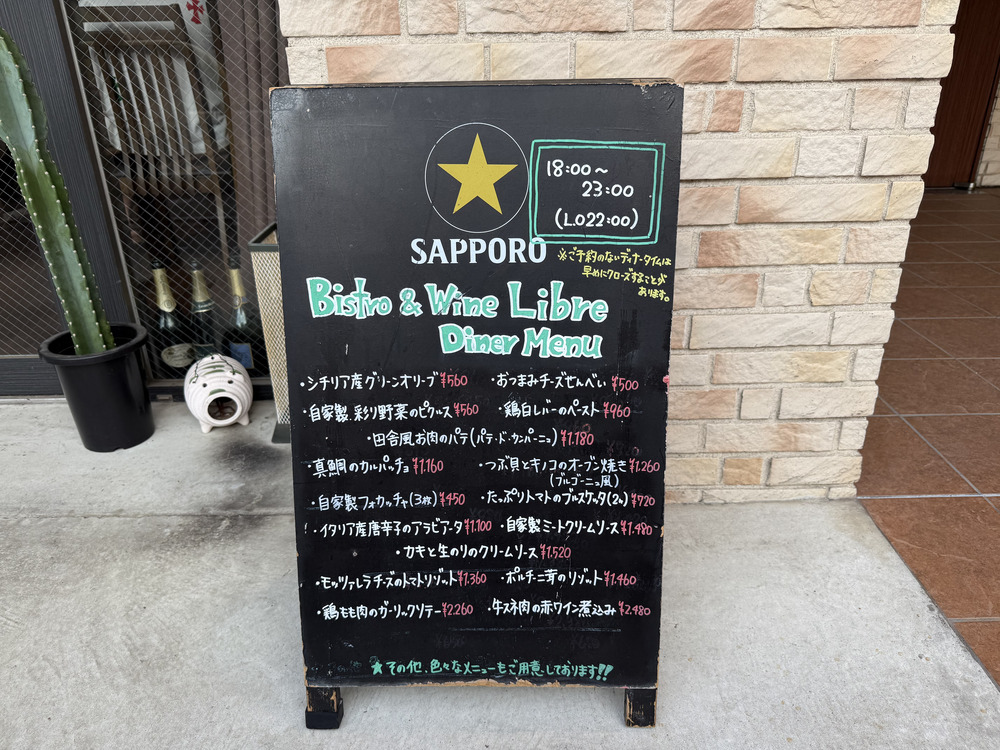 18:00～
23:00
(L.O22:00)
SAPPORO
※ご予約のないディナータイムは
早めにクローズすることが
あります。
Bistro & Wine Libre
Diner Menu
・シチリア産グリーンオリーブ ¥560 ・おつまみチーズせんべい ¥500
・自家製 彩り野菜のピクルス ¥560 ・鶏白レバーのペースト ¥960
・田舎風お肉のパテ(パテ・ド・カンパーニュ) ¥1.180
・真鯛のカルパッチョ ¥1.160 ・つぶ貝とキノコのオーブン焼き ¥1.260
(ブルゴーニュ風)
・自家製フォカッチャ(3枚) ¥450 ・たっぷりトマトのブルスケッタ(2ヶ) ¥720
・イタリア産唐辛子のアラビアータ ¥1.100 ・自家製ミートクリームソース ¥1.480
・カキと生のりのクリームソース ¥1.520
・モッツァレラチーズのトマトリゾット ¥1.360 ・ポルチーニ茸のリゾット ¥1.460
・鶏もも肉のガーリックソテー ¥2.260 ・牛スネ肉の赤ワイン煮込み ¥2.480
★その他、色々なメニューもご用意しております!!